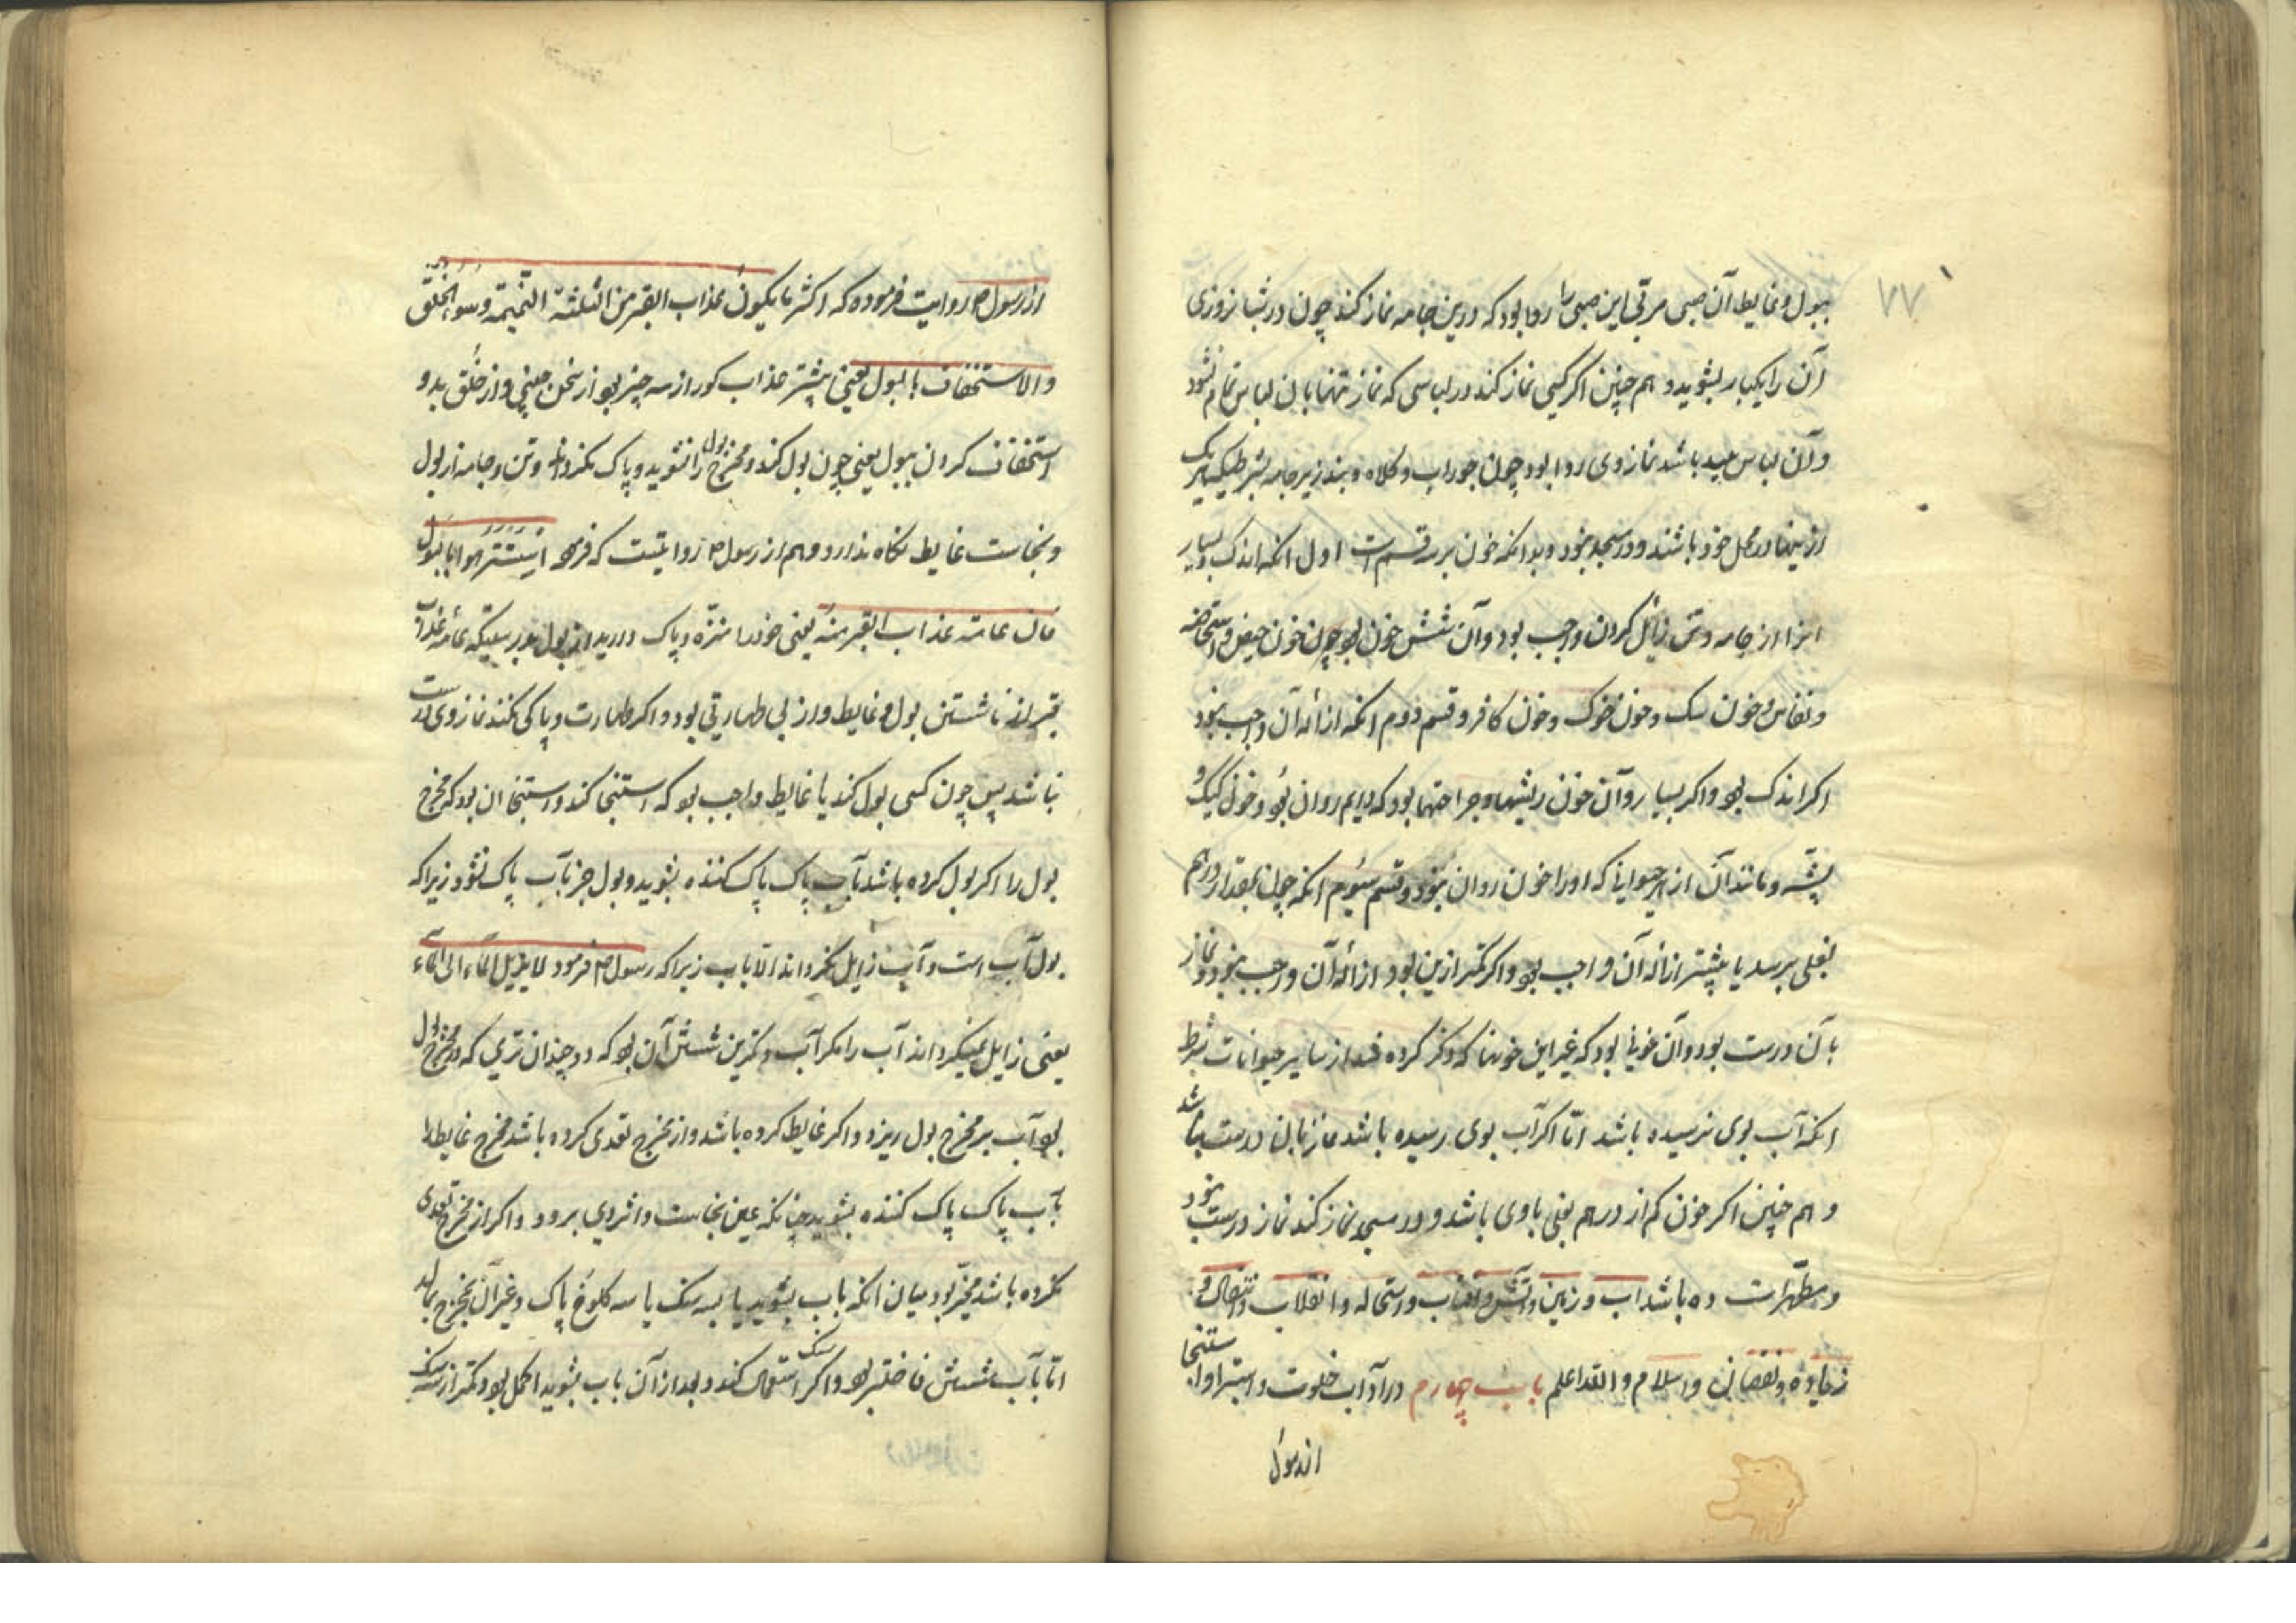 ۷۷
ببول و غایط آن صبی مربی این صبی را روا بود که درین جامه نماز کند چون در شبانروزی
آن را یکبار بشوید و هم چنین اکر کسی نماز کند در لباسی که نماز تنها بان لباس تمام نشود
و آن لباس پلید باشد نماز وی روا بود چون جوراب و کلاه و بند زیر جامه بشرط یک
ازینها در محل خود باشند و در مسجد نبود و بدانکه خون بر سه قسم است اول انکه اندک و بسیار
انرا از جامه و تن زایل کردن واجب بود و آن شش خون بود چون خون حیض و استحاضه
و نفاس و خون سک و خون خوک و خون کافر و قسم دوم انکه ازاله آن واجب نبود
اکر اندک بود و اکر بسیار و آن خون ریشها و جراحتها بود که دایم روان بود و خون کیک و
پشه و مانند آن از حیوانی که او را خون روان نبود و قسم سیوم انکه چون بمقدار درهم
بغلی برسد یا بیشتر ازاله آن واجب بود و اکر کمتر ازین بود ازاله آن واجب نبود و نماز
با آن درست بود و آن خونی بود که غیر این خونها که ذکر کرده شد از سایر حیوانات بشرط
انکه آب بوی نرسیده باشد امّا اکر آب بوی رسیده باشد نماز بان درست نباشد
و هم چنین اکر خون کم از درهم بغلی باوی باشد و در مسجد نماز کند نماز درست نبود
و مطهّرات ده باشد اب و زمین و آتش و آفتاب و استحاله و انقلاب و انتقال و
زیاده و نقصان و اسلام والله اعلم باب چهارم در آداب خلوت و استبرا و استنجا
از رسول
از رسول ص روایت فرموده که اکثر ما یکون عذاب القبر من الثلثة النمیمة و سوء الخلق
والاستخفاف بالبول یعنی بیشتر عذاب کور از سه چیز بود از سخن چینی و از خلق بد و
استخفاف کردن ببول یعنی چون بول کند و مخرج بول را نشوید و پاک نکرداند و تن و جامه از بول
و نجاست غایط نکاه ندارد و هم از رسول ص روایتست که فرمود استنزهوا بالبول
فان عامة عذاب القبر منه یعنی خود را منزّه و پاک دارید از بول بدرستیکه عامه عذاب
قبر از ناشستن بول و غایط و از بی طهارتی بود و اکر طهارت و پاکی نکند نماز وی درست
نباشد پس چون کسی بول کند یا غایط واجب بود که استنجا کند و استنجا ان بود که مخرج
بول را اکر بول کرده باشد بآب پاک پاک کننده بشوید و بول جز بآب پاک نشود زیرا که
بول آب است و آب زایل نکرداند الا باب زیرا که رسول ص فرمود لا یزیل الماء الی الماء
یعنی زایل نمیکرداند آب را مکر آب و کمترین شستن آن بود که دو چندان تری که در مخرج بول
بود آب بر مخرج بول ریزد و اکر غایط کرده باشد و از مخرج تعدی کرده باشد مخرج غایط را
بآب پاک پاک کننده بشوید چنانکه عین نجاست و اثر وی برود و اکر از مخرج تعدی
نکرده باشد مخیّر بود میان انکه باب بشوید یا بسه سنک یا سه کلوخ پاک و غیر آن مخرج بمالد
امّا بآب شستن فاضلتر بود و اکر سنک استعمال کند و بعد از آن باب بشوید اکمل بود و کمتر از سه سنک